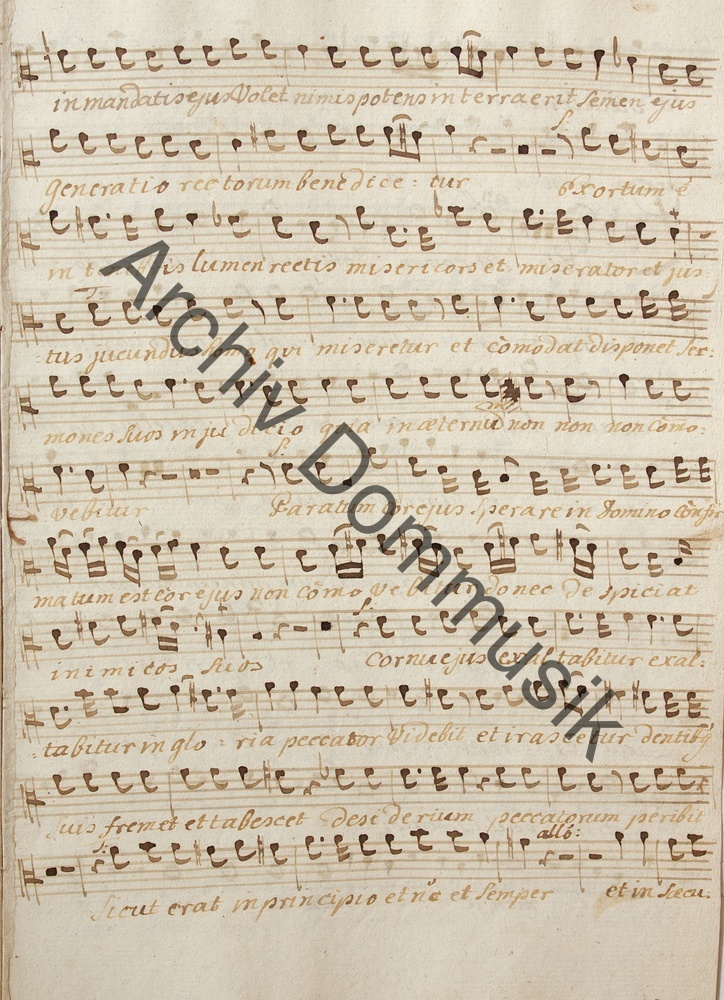 in mandatis ejus Volet nimis potens in terra erit Semen ejus
S:
generatio rectorum benedice = tur Exortum ē
in t is lumen rectis misericors et miserator et jus:
T:
:tus jucundus homo qui miseretur et comodat disponet Ser:
mones Suos in judicio quia in æternū non non non como:
S:
vebitur Paratum cor ejus Sperare in Domino confir
matum est cor ejus non comovebitur donec despiciat
S:
inimicos Suos Cornu ejus exaltabitur exal:
:tabitur in glo = ria peccator Videbit et irascetur dentibȝ
Suis fremet et tabescet desiderium peccatorum peribit
T: allō:
Sicut erat in principio et nc̄ et Semper et in Sæcu:
Archiv Dommusik